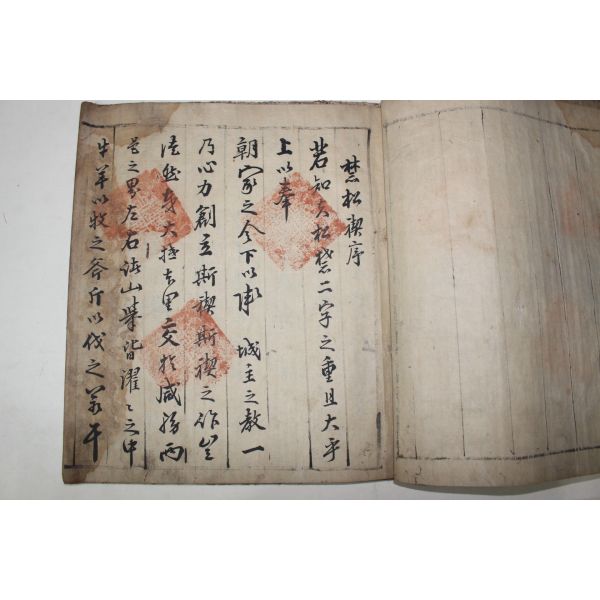 禁松禊序
若知夫松禁二字之重且大乎
上以奉
朝家之令下以承 城主之教一
乃心力創立斯禊斯禊之作豈
徒然哉大抵吾里交於咸陽兩
邑之界左右諸山舉皆濯〻之中
牛羊以牧之斧斤以伐之若干